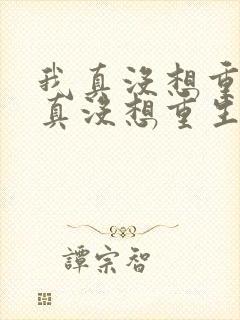 我真沒想重
真沒想重生
譚宗智